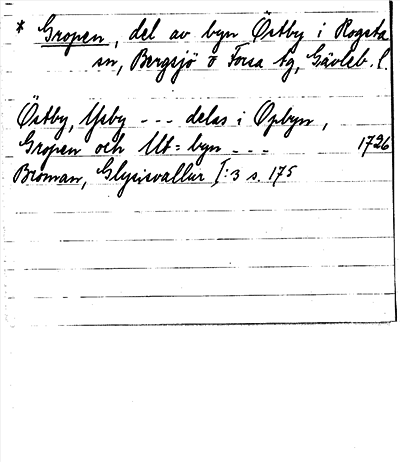 * Gropen, del av byn Östby i Rogsta
sn, Bergsjö o Forsa tg, Gävleb. l.
Östby, Ysby --- delas i Opbyn,
Gropen och Ut=byn --- 1726
Broman, Glysisvallur I:3 s. 175